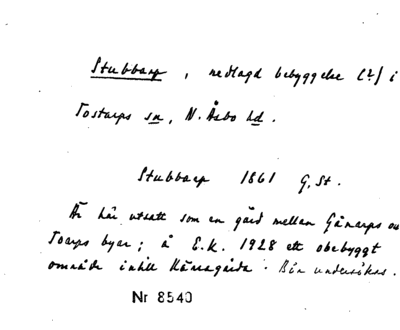 Stubbarp, nedlagd bebyggelse (?) i
Tostarps sn, N. Åsbo hd.
Stubbarp 1861 G. St.
Är här utsatt som en gård mellan Gånarps o
Toarps byar; å E.k. 1928 ett obebyggt
område intill Bör undersökas.
Nr 8540